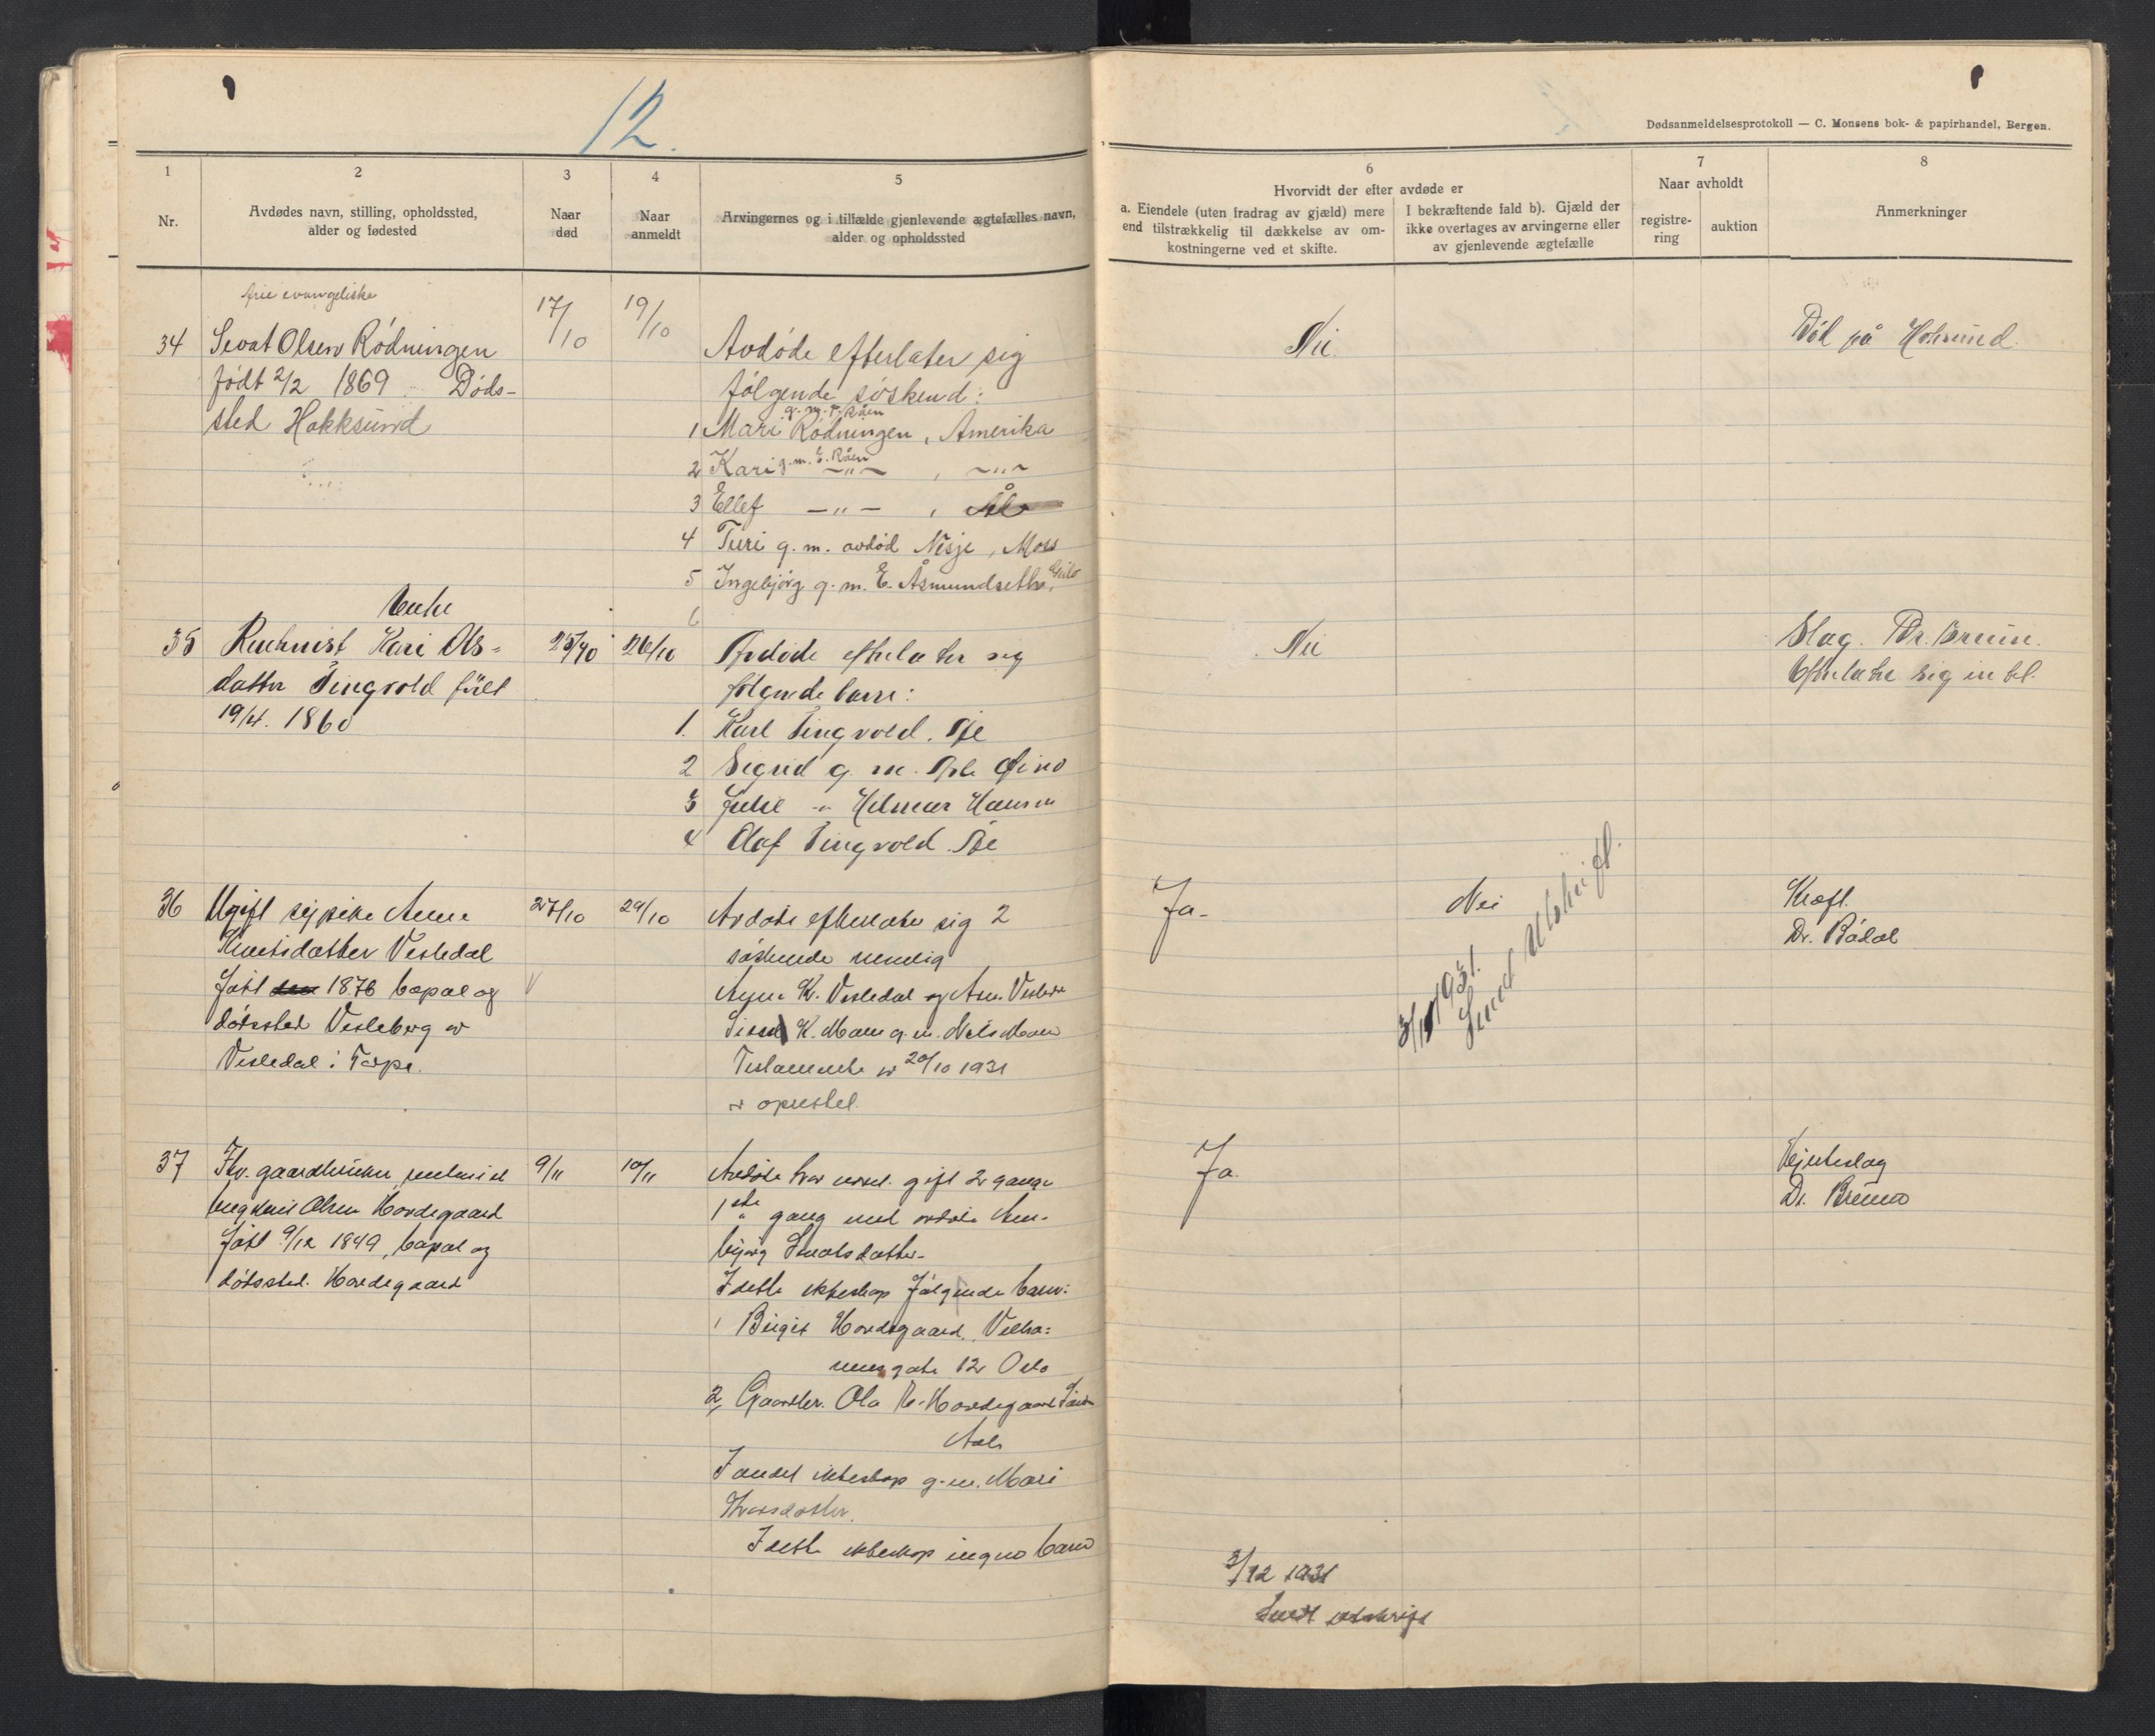 12.
Dødsanmeldelsesprotokoll — C. Monsens bok- & papirhandel, Bergen.
1
Nr.
2
Avdødes navn, stilling, opholdssted,
alder og fødested
3
Naar
død
4
Naar
anmeldt
5
Arvingernes og i tilfælde gjenlevende ægtefælles navn,
alder og opholdssted
6
Hvorvidt der efter avdøde er
a. Eiendele (uten fradrag av gjæld) mere
end tilstrækkelig til dækkelse av om-
kostningerne ved et skifte.
I bekræftende fald b). Gjæld der
ikke overtages av arvingerne eller
av gjenlevende ægtefælle
7
Naar avholdt
registre-
ring
auktion
8
Anmerkninger
frie evangeliske
34 Sevat Olsen Rødningen
født 2/2 1869 Døds-
sted Hokksund
17/10
19/10
Avdøde efterlater sig
følgende søskend:
g. m. T. Råen
1 Mari Rødningen, Amerika
2 Kari g.m. E. Råen —"— , —"—
3 Ellef —"— , Ål
4 Turi g. m. avdød Nisje, Moss
5 Ingebjørg g. m. E. Åsmundseth, Geilo
6
Nei
Død på Hoksund.
Enke
35 Kari Ols-
datter Tingvold født
19/4. 1860
25/10
26/10
Avdøde efterlater sig
følgende barn:
1. Karl Tingvold.
2 Sigrid g. m.
3 Julie " Hilmar Hansen
4 Olaf Tingvold.
Nei
Slag. Dr. Bruun.
Efterlater sig
36 Ugift Anne
Knutsdatter Vesledal
født 1876 bopæl og
dødssted Vesleberg av
Vesledal i Torpe.
27/10
29/10
Avdøde efterlater sig 2
søskende nemlig
K. Vesledal og
K. Moen g. m. Nils Moen
Testamente av 20/10 1931
er oprettet.
Ja-
Nei
1931.
Sendt utskrift.
Kræft.
Dr. Rødal
37 Fhv. gaardbruker,
Olsen Hovdegaard
født 9/12 1849, bopæl og
dødssted. Hovdegaard
9/11
10/11
Avdøde har været gift 2 gange
1ste gang med avdøde Am-
bjørg Knutsdatter-
I dette ekteskap følgende barn:
1 Birgit Hovdegaard,
gate 12 Oslo
2, Gaardbr. Ola Hovdegaard
Aal.
I andet ekteskap g. m. Mari
I dette ekteskap ingen barn
Ja.
Hjerteslag
Dr. Bruun
3/12 1931
Sendt utskrift